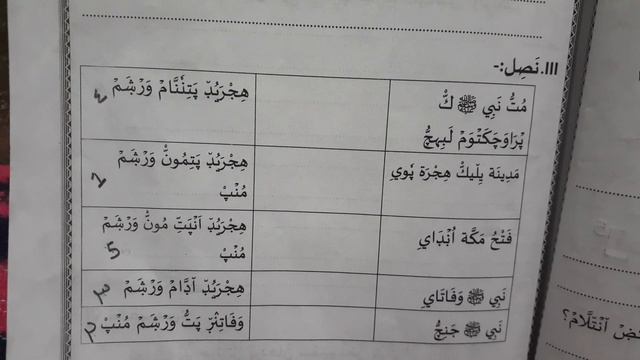 III. نَصِل:-
مُتُّ نَبِي ﷺ كُّ
پْرَاوَچَكَتْوَمْ لَبِهچُّ
هِجْرَيُڊ݂ پَتِنَّنَّامْ وَرْشِمْ ٤
مَدِينَة يِلّيكُّ هِجْرَة پٗوي
هِجْرَيُڊ݂ پَتِمُونُّ وَرْشَمْ
مُنْپْ 1
فَتْحُ مَكَّة اُنْڊَاي
هِجْرَيُڊ݂ اَنْپَتِّ مُونُّ وَرْشَمْ
مُنْپْ 5
نَبِي ﷺ وَفَاتَاي
هِجْرَيُڊ݂ اَڊَّامْ وَرْشَمْ ٣
نَبِي ﷺ جَنِچُّ
وَفَاتِنّ پَتُّ وَرْشَمْ مُنْپْ ٢
اَنْتَلَّامْ؟